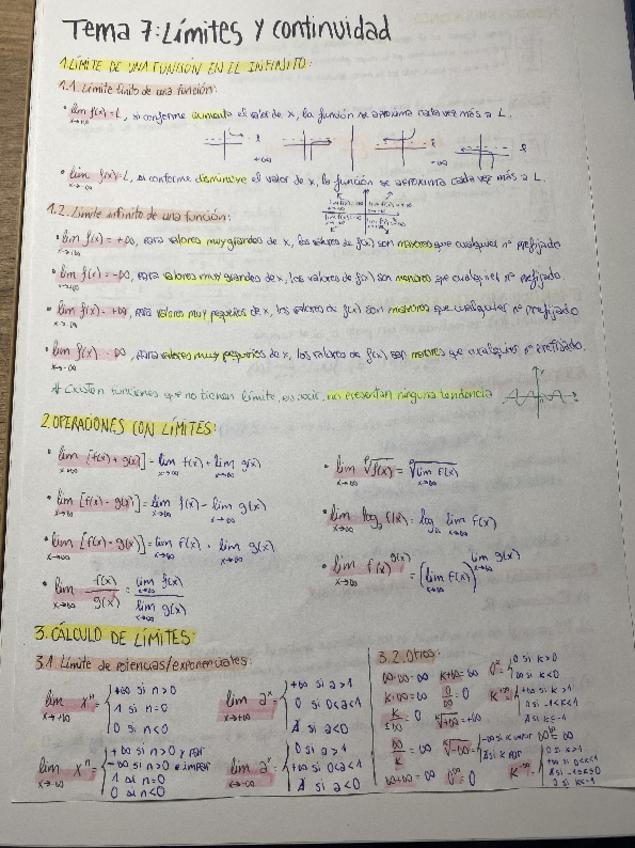 Tema 7: Límites y continuidad
1. LÍMITE DE UNA FUNCIÓN EN EL INFINITO:
1.1. Límite finito de una función:
• lim x→+∞ f(x)=L, si conforme aumenta el valor de x, la función se aproxima cada vez más a L.
• lim x→-∞ f(x)=L, si conforme disminuye el valor de x, la función se aproxima cada vez más a L.
1.2. Límite infinito de una función:
• lim x→+∞ f(x) = +∞, para valores muy grandes de x, los valores de f(x) son mayores que cualquier nº prefijado
• lim x→+∞ f(x) = -∞, para valores muy grandes de x, los valores de f(x) son menores que cualquier nº prefijado.
• lim x→-∞ f(x) = +∞, para valores muy pequeños de x, los valores de f(x) son mayores que cualquier nº prefijado
• lim x→-∞ f(x) = -∞, para valores muy pequeños de x, los valores de f(x) son menores que cualquier nº prefijado.
* Existen funciones que no tienen límite, es decir, no presentan ninguna tendencia
2. OPERACIONES CON LÍMITES:
• lim x→∞ [f(x) + g(x)] = lim x→∞ f(x) + lim x→∞ g(x)
• lim x→∞ [f(x) - g(x)] = lim x→∞ f(x) - lim x→∞ g(x)
• lim x→∞ [f(x) · g(x)] = lim x→∞ f(x) · lim x→∞ g(x)
• lim x→∞ f(x)/g(x) = lim x→∞ f(x) / lim x→∞ g(x)
• lim x→∞ ᵖ√f(x) = ᵖ√lim x→∞ f(x)
• lim x→∞ logₐ f(x) = logₐ lim x→∞ f(x)
• lim x→∞ f(x)^g(x) = (lim x→∞ f(x))^lim x→∞ g(x)
3. CÁLCULO DE LÍMITES:
3.1 Límite de potencias/exponenciales:
lim x→+∞ xⁿ = { +∞ si n>0
1 si n=0
0 si n<0
lim x→+∞ aˣ = { +∞ si a>1
0 si 0<a<1
∄ si a<0
lim x→-∞ xⁿ = { +∞ si n>0 y par
-∞ si n>0 e impar
1 si n=0
0 si n<0
lim x→-∞ aˣ = { 0 si a>1
+∞ si 0<a<1
∄ si a<0
3.2. Otros:
k+∞=∞
k/±∞ = 0
∞/k = ∞
∞+∞ = ∞